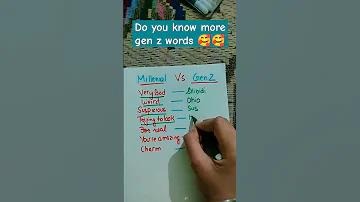 Do you know more
gen z words 🥰🥰
Millenial Vs Gen Z
Very Bad — Skibidi
weird — Ohio
Suspicious — Sus
Trying to look —
For real —
You're amazing
Charm